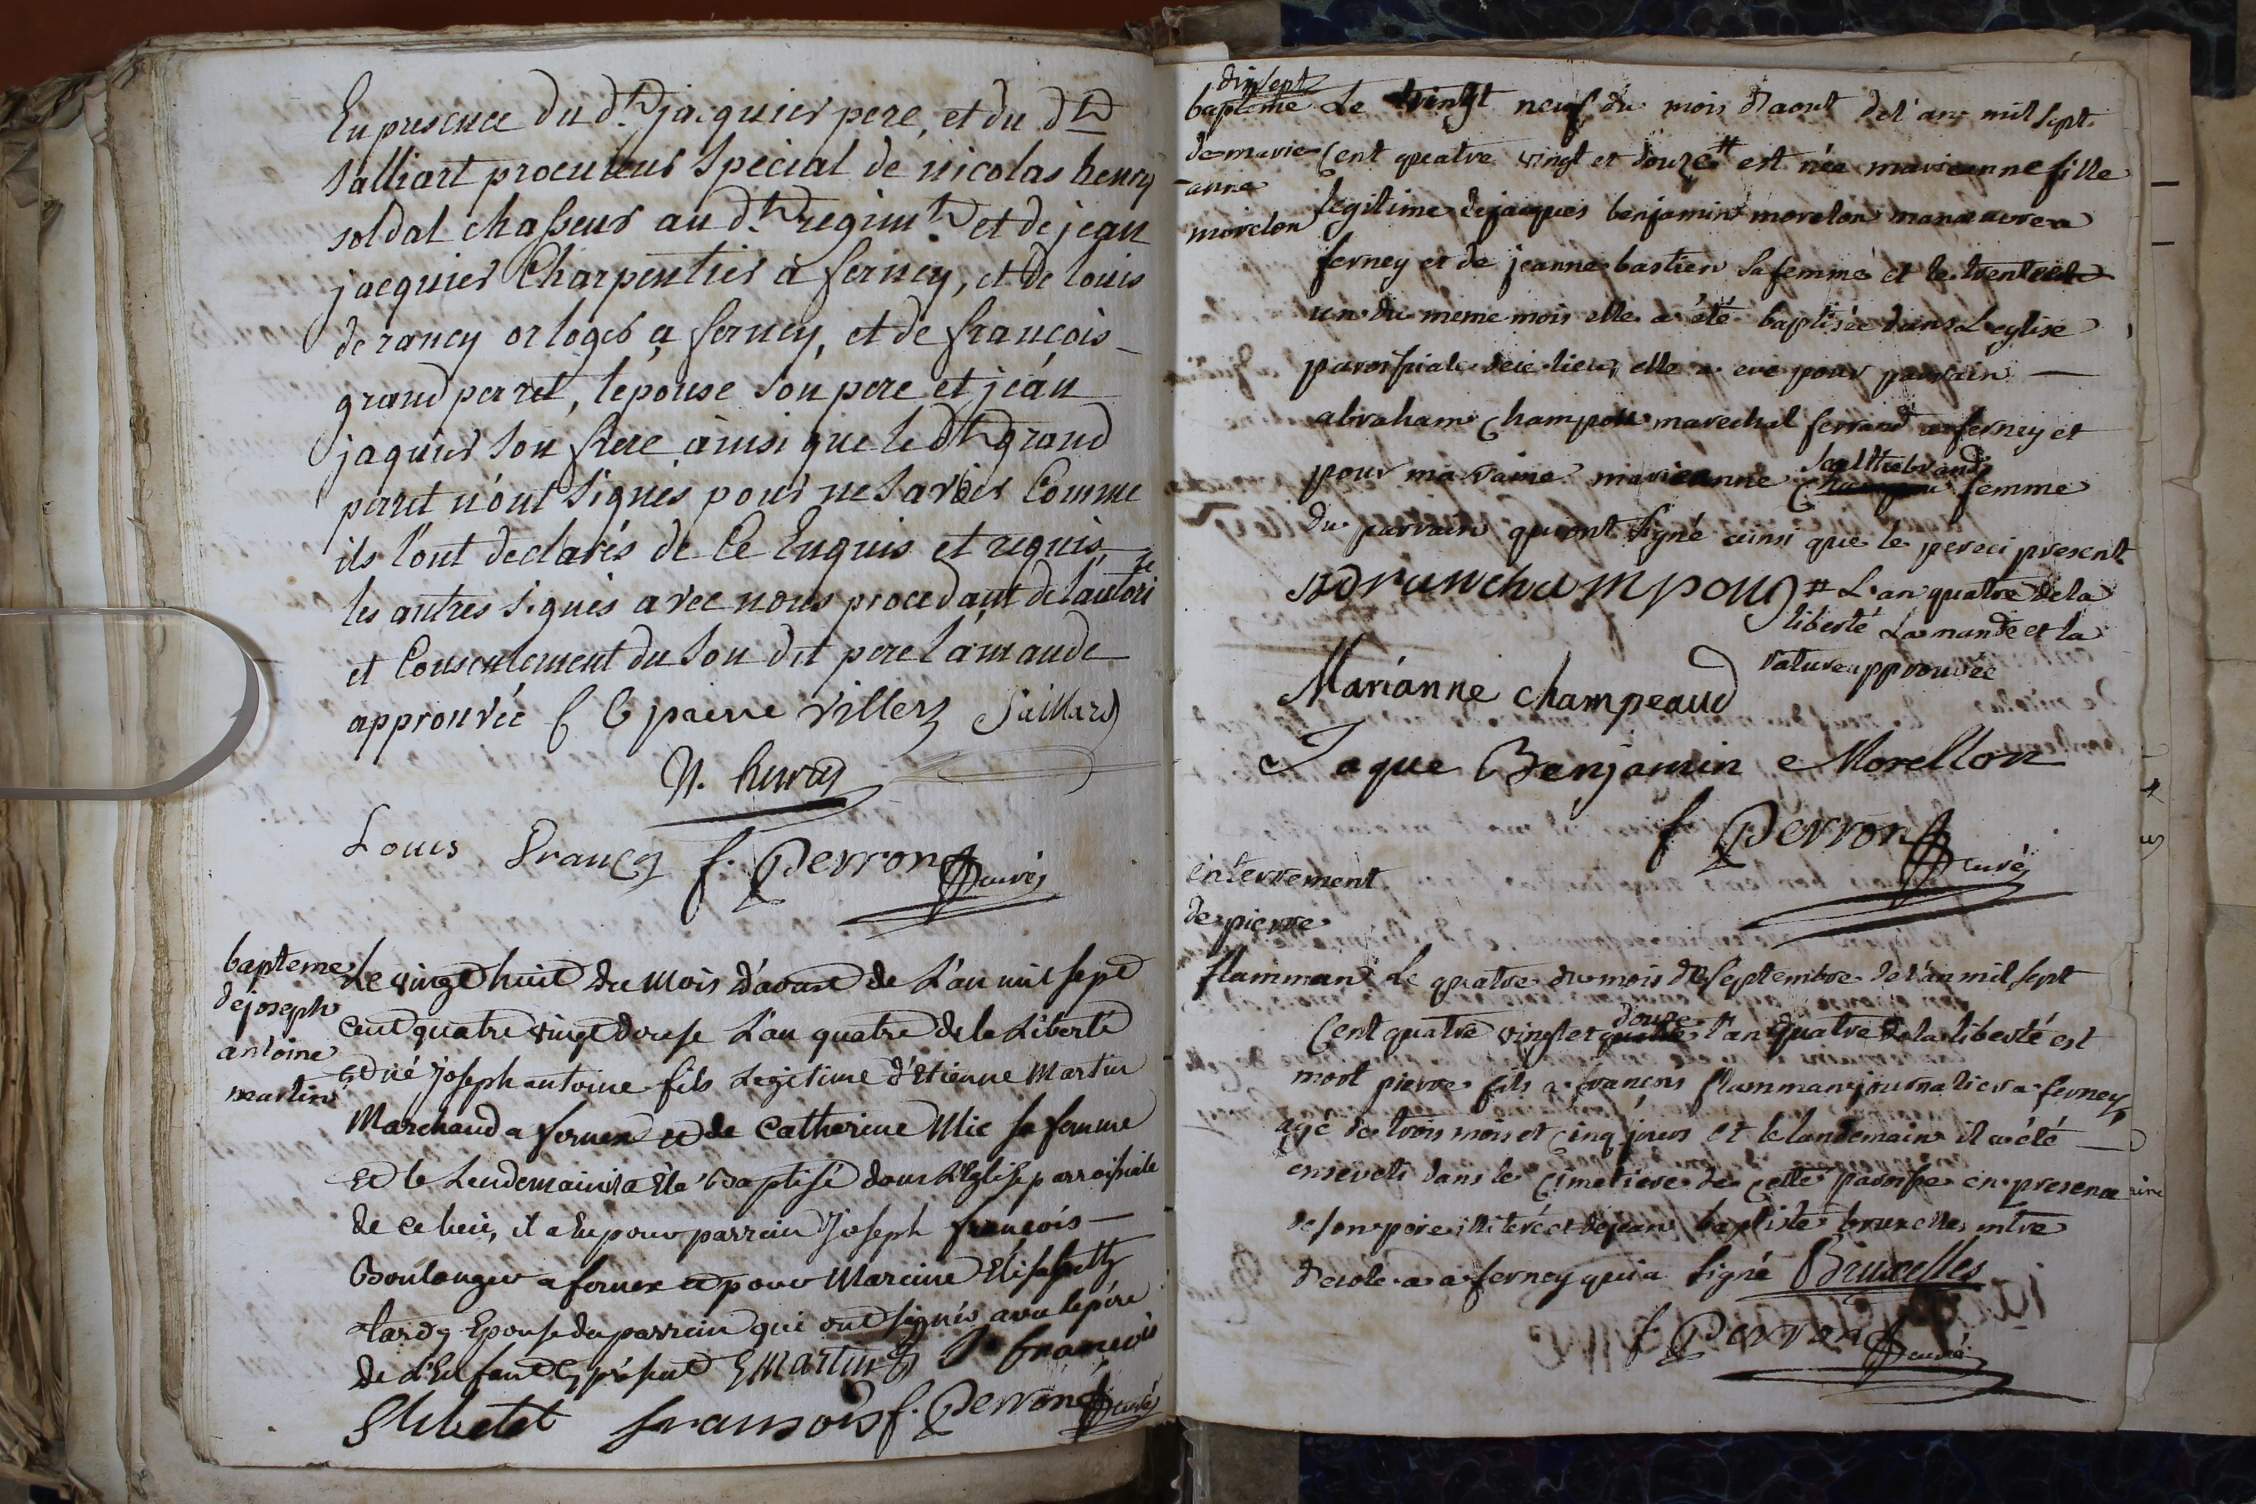 En presence du dt jacquier pere, et du dt
salliart procureur spécial de nicolas henry
soldat chasseur au dt regimt et de jean
jacquier Charpentier à ferney, et de louis
de rancy orloger a ferney, et de françois
grand perret, lepouse son pere et jean
jaquier son frere ainsi que le dt grand
perret n'ont signés pour ne savoir Comme
ils l'ont declarés de Ce Enquis et requis,
les autres signés avec nous procedant de l'autori
té
et Consentement du son dit pere l'amande
approuvée villers Saillard
N. henry
Louis francy f. Perron curé
bapteme
de joseph
antoine
martin
Le vingt huit du mois d'aoust de L'an mil sept
cent quatre vingt douse L'an quatre de la Liberté
est né joseph antoine fils Legitime d'Etienne Martin
Marchand a fernex et de Catherine Mie sa femme
Et le Lendemain il a Eté Baptisé dans L'Eglise parroissiale
de ce lieu, il a Eu pour parrein joseph françois
Boulanger a fernex et pour Mareine Elisabeth
tardy Epouse du parrein qui ont signés avec le pére
de l'Enfant cy présent E Martin J francois
fransois f. Perron curé
dixsept
bapteme
de marie
anne
morelon
Le vingt neuf du mois d'aout de l'an mil sept
Cent quatre vingt et douze # est née marieanne fille
legitime de jacques benjamin morelon manœuvre a
ferney et de jeanne bastien sa femme et le trente et
un du meme mois elle a été baptisée dans L'eglise
paroissiale de ce lieu, elle a eue pour parrain
abraham Champou marechal ferrand a ferney et
pour maraine marieanne femme
du parrain qui ont signé ainsi que le pere ci present
# L'an quatre de la
liberté La mande et la
rature approuvée
Marianne champeaud
Jaque Benjamin Morellon
f Perron curé
enterrement
de pierre
flamman
Le quatre du mois de septembre de l'an mil sept
douze
Cent quatre vingt et quatre l'an quatre de la liberté est
mort pierre fils a françois flamman journalier a ferney
agé de trois mois et cinq jours et le landemain il a été
enseveli dans le cimetiere de cette paroisse en presence
de son pere illiteré et de jean baptiste bruxelles mtre
d'ecole a a ferney qui a signé Bruxelles
f Perron curé